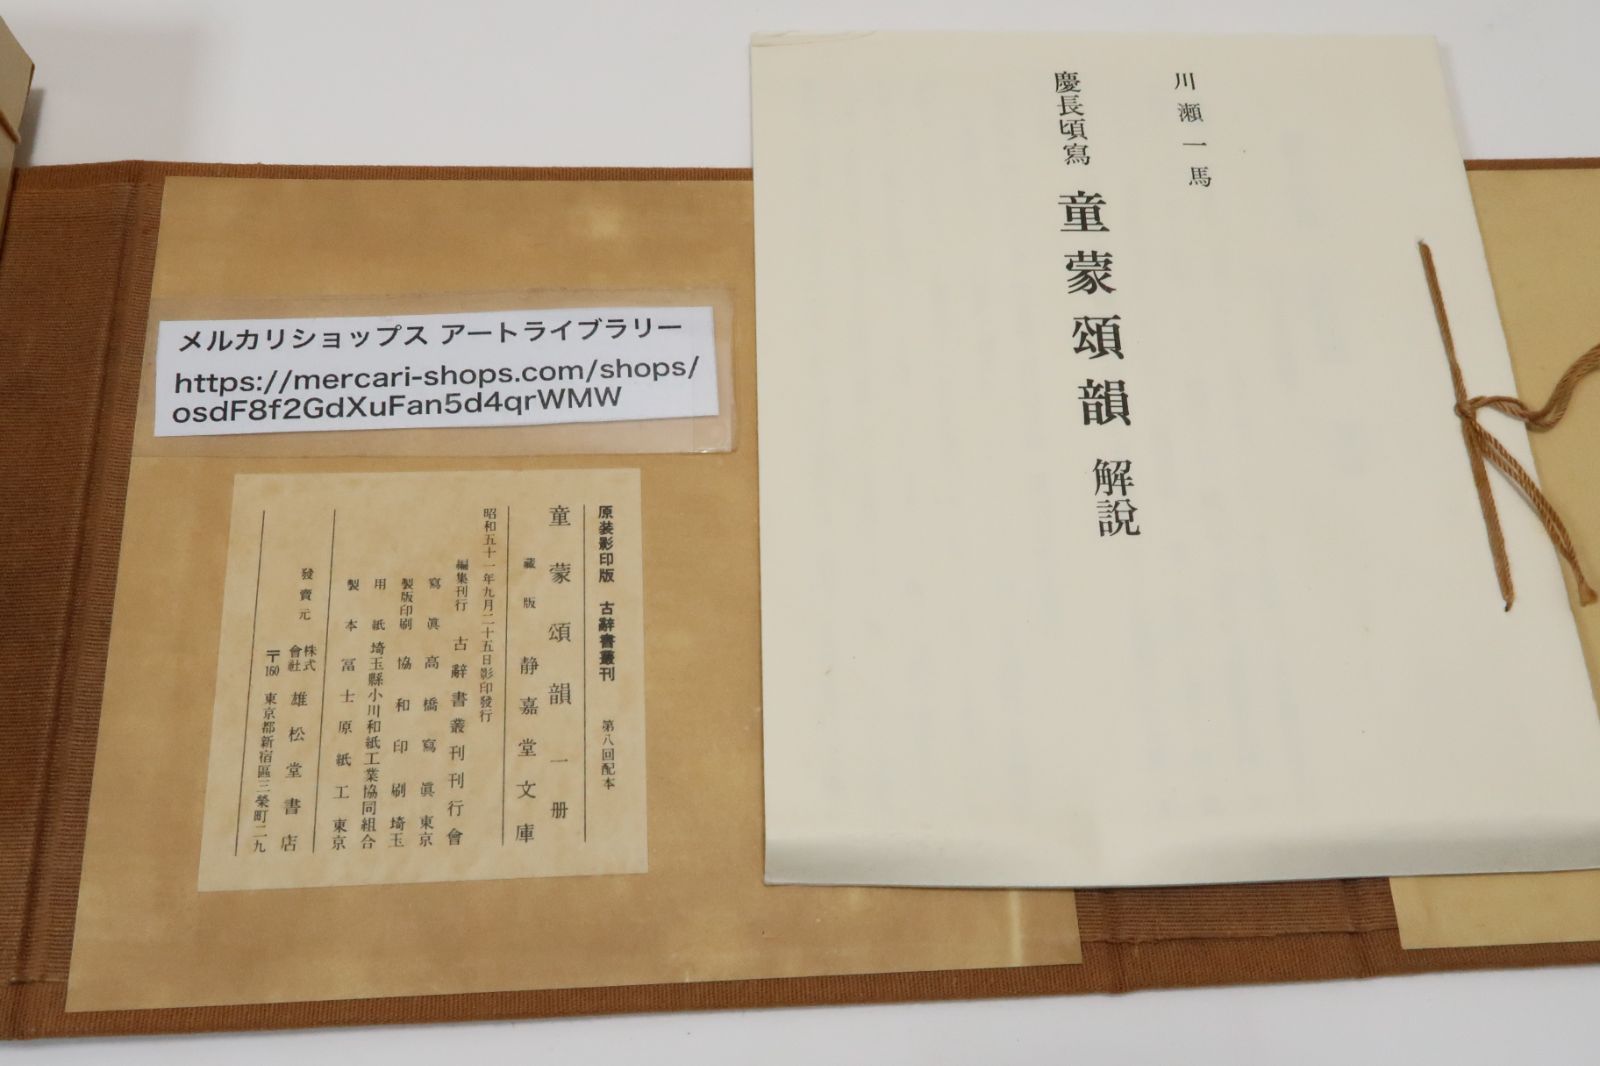 川瀬一馬
慶長頃寫 童蒙頌韻 解説
メルカリショップス アートライブラリー
https://mercari-shops.com/shops/
osdF8f2GdXuFan5d4qrWMW
原装影印版 古辭書叢刊 第八回配本
童蒙頌韻 一册
藏版 静嘉堂文庫
昭和五十一年九月二十五日影印發行
編集刊行 古辭書叢刊刊行會
寫眞 高橋寫眞 東京
製版印刷 協和印刷 埼玉
用紙 埼玉縣小川和紙工業協同組合
製本 冨士原紙工 東京
發賣元 株式會社 雄松堂書店
〒160 東京都新宿區三榮町二九